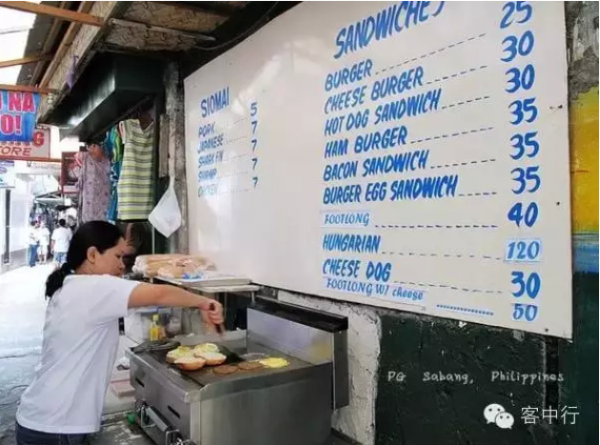 U NA
O!
ORE
SIOMAI
PORK 5
JAPANESE 7
SHARK FIN 7
SHRIMP 7
CHICKEN 7
SANDWICHES
BURGER 25
CHEESE BURGER 30
HOT DOG SANDWICH 30
HAM BURGER 35
BACON SANDWICH 35
BURGER EGG SANDWICH 35
FOOTLONG 40
HUNGARIAN 120
CHEESE DOG 30
FOOTLONG W/ cheese 50
PG Sabang, Philippines
客中行